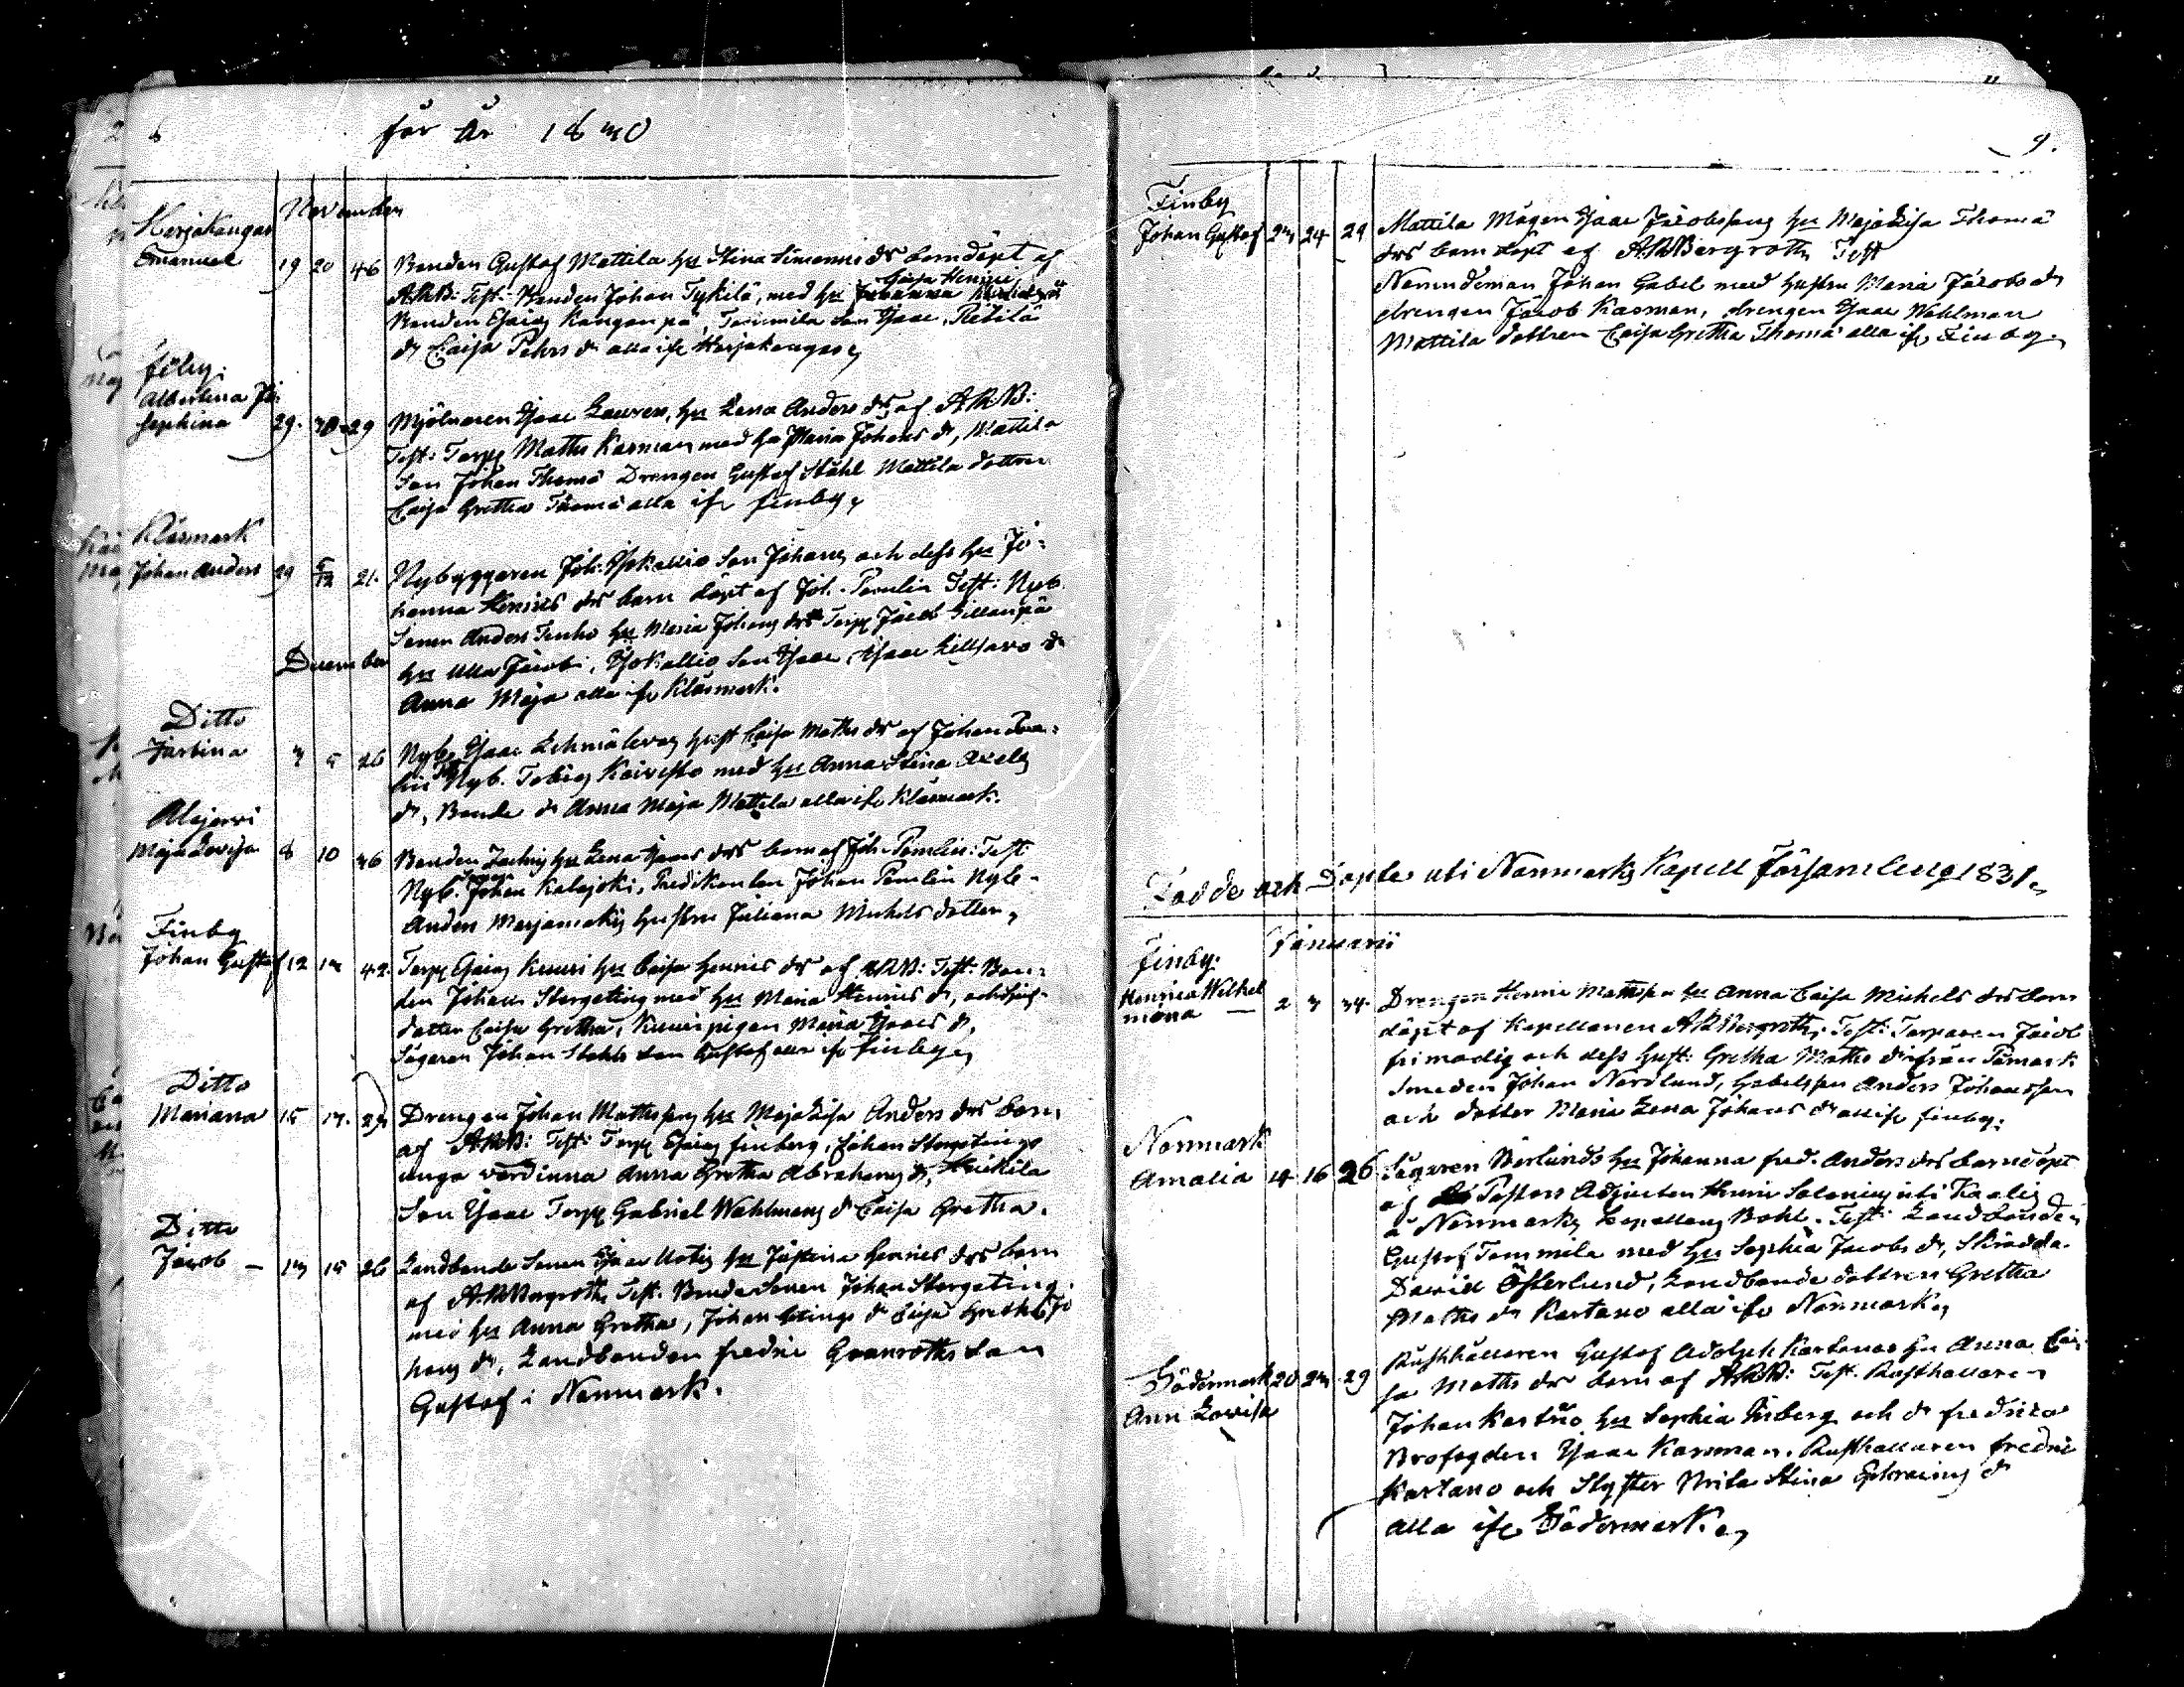 8
för År 1830
November
Herjakangas
Emanuel 19 20 46 Bonden Gustaf Mattila hu Stina Simonis dr barn döpt af
ARB: Test: Bonden Johan Tykilä, med hu Caisa Henrici
Bonden Esaias Kanganpä, Tommila Son Isaac, Pietilä
dr Caisa Pehrs dr alla ifr Herjakangas
finby:
Albertina Jo:
sephina 29. 30. 29 Mjölnaren Isaac Laurens, hu Lena Anders dr af ARB:
Test: Torp Matts Kasman med hu Maria Johans dr, Mattila
Son Johan Thomä Drengen Gustaf Ståhl Mattila dottren
Caisa Gretha Thomä alla ifr finby
Kläsmark
Johan Anders 29 5/12 21. Nybyggaren Joh: Isokallio Son Johans och dess hu Jo:
hanna Henrics dr barn döpt af Joh. Pemlin Test: Nyb.
Sonen Anders Tenho hu Maria Johans dr Torp Jacob
hu Ulla Jacobi, Isokallio Son Isaac, Isaac Liljavo dr
Anna Maja alla ifr Kläsmark.
December
Ditto
Justina 3 5 26 Nyb. Isaac hust Caisa Matts dr af Johan Pem:
lin Nyb. Tobias Koivisto med hu Anna Stina Axels
dr, Bonde dr Anna Maja Mattila alla ifr Kläsmark.
Alajervi
Maja Lovisa 8 10 36 Bonden Zachris hu Lena Isaacs drs barn af Joh. Pemlin: Test:
Nyb. Sonen Johan Kalajoki, Predikanten Johan Pemlin Nyb-
Anders Marjamäkis hustru Juliana Michels dotter,
Finby
Johan Gustaf 12 13 42. Torp Esaias Knuuti hu Caisa Henrics dr af ARB: Test: Bon:
den Johan Storgeting med hu Maria Henrics dr,
dotter Caisa Gretha, pigan Maria Isaacs dr,
Sågaren Johan Stohls Son Gustaf alla ifr finby
Ditto
Mariana 15 17. 27 Drengen Johan Mattsson hu Maja Lisa Anders drs barn
af ARB: Test: Torp Esaias finberg, Johan Storgetings
unga värdinna Anna Gretha Abrahams dr,
Son Isaac Torp Gabriel Wahlmans dr Caisa Gretha.
Ditto
Jacob — 13 15 26 Landbonde Sonen Isaac Uotis hu Justina Henrics drs barn
af ARBergroth, Test. Bonde Sonen Johan Storgeting
med hu Anna Gretha, Johan Getings dr Caisa Gretha Jo
hans dr, Landbonden fredric Granroths Son
Gustaf i Norrmark.
9.
Finby
Johan Gustaf 23 24 29 Mattila Mågen Isaac Jacobsson hu Maja Lisa Thomä
drs barn döpt af ARBergroth Test
Nämndeman Johan Gabel med hustru Maria Jacobs dr
drengen Jacob Kasman, drengen Isaac Wahlman
Mattila dottren Caisa Gretha Thomä alla ifr Finby
Födde och Döpte uti Norrmarks Kapell Församling 1831.
Januarii
finby:
Henrica Wilhel
mina — 2 3 34. Drengen Henric Mattsson hu Anna Caisa Michels drs barn
döpt af Kapellanen ARBergroth, Test: Torparen Jacob
frimodig och dess hust: Gretha Matts dr ifrån Påmark
Smeden Johan Nordlund, Gabelsson Anders Johansson
och dotter Maria Lena Johans dr alla ifr finby:
Norrmark
Amalia 14 16 26 Sågaren Norlunds hu Johanna fred. Anders drs barn döpt
af Pastors Adjuncten Henric Salonius uti
å Norrmarks Capellans Bohl. Test: Landbonden
Gustaf Tommila med hu Sophia Jacobs dr, Skrädda.
David Österlund, Landbonde dottren Gretha
Matts dr Kartano alla ifr Norrmark
Södermark 20 23 29 Rusthållaren Gustaf Adolph Kartanos hu Anna Cai-
Ann Lovisa sa Matts dr barn af ARB: Test. Rusthållaren
Johan Kartano hu Sophia och dr fredrica
Brofogden Isaac Kasman. Rusthållaren fredric
Kartano och Styfter Brita Stina Ephraims dr
alla ifr Södermark